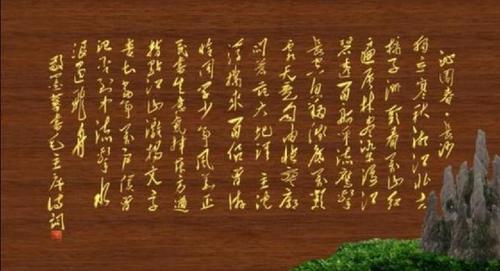 沁园春·长沙
独立寒秋湘江北去
橘子洲头看万山红
遍层林尽染漫江
碧透百舸争流鹰击
长空鱼翔浅底万类
霜天竞自由怅寥廓
问苍茫大地谁主沉
浮携来百侣曾游
恰同学少年风华正
茂书生意气挥斥方遒
指点江山激扬文字
粪土当年万户侯曾
记否到中流击水
浪遏飞舟
书毛主席诗词